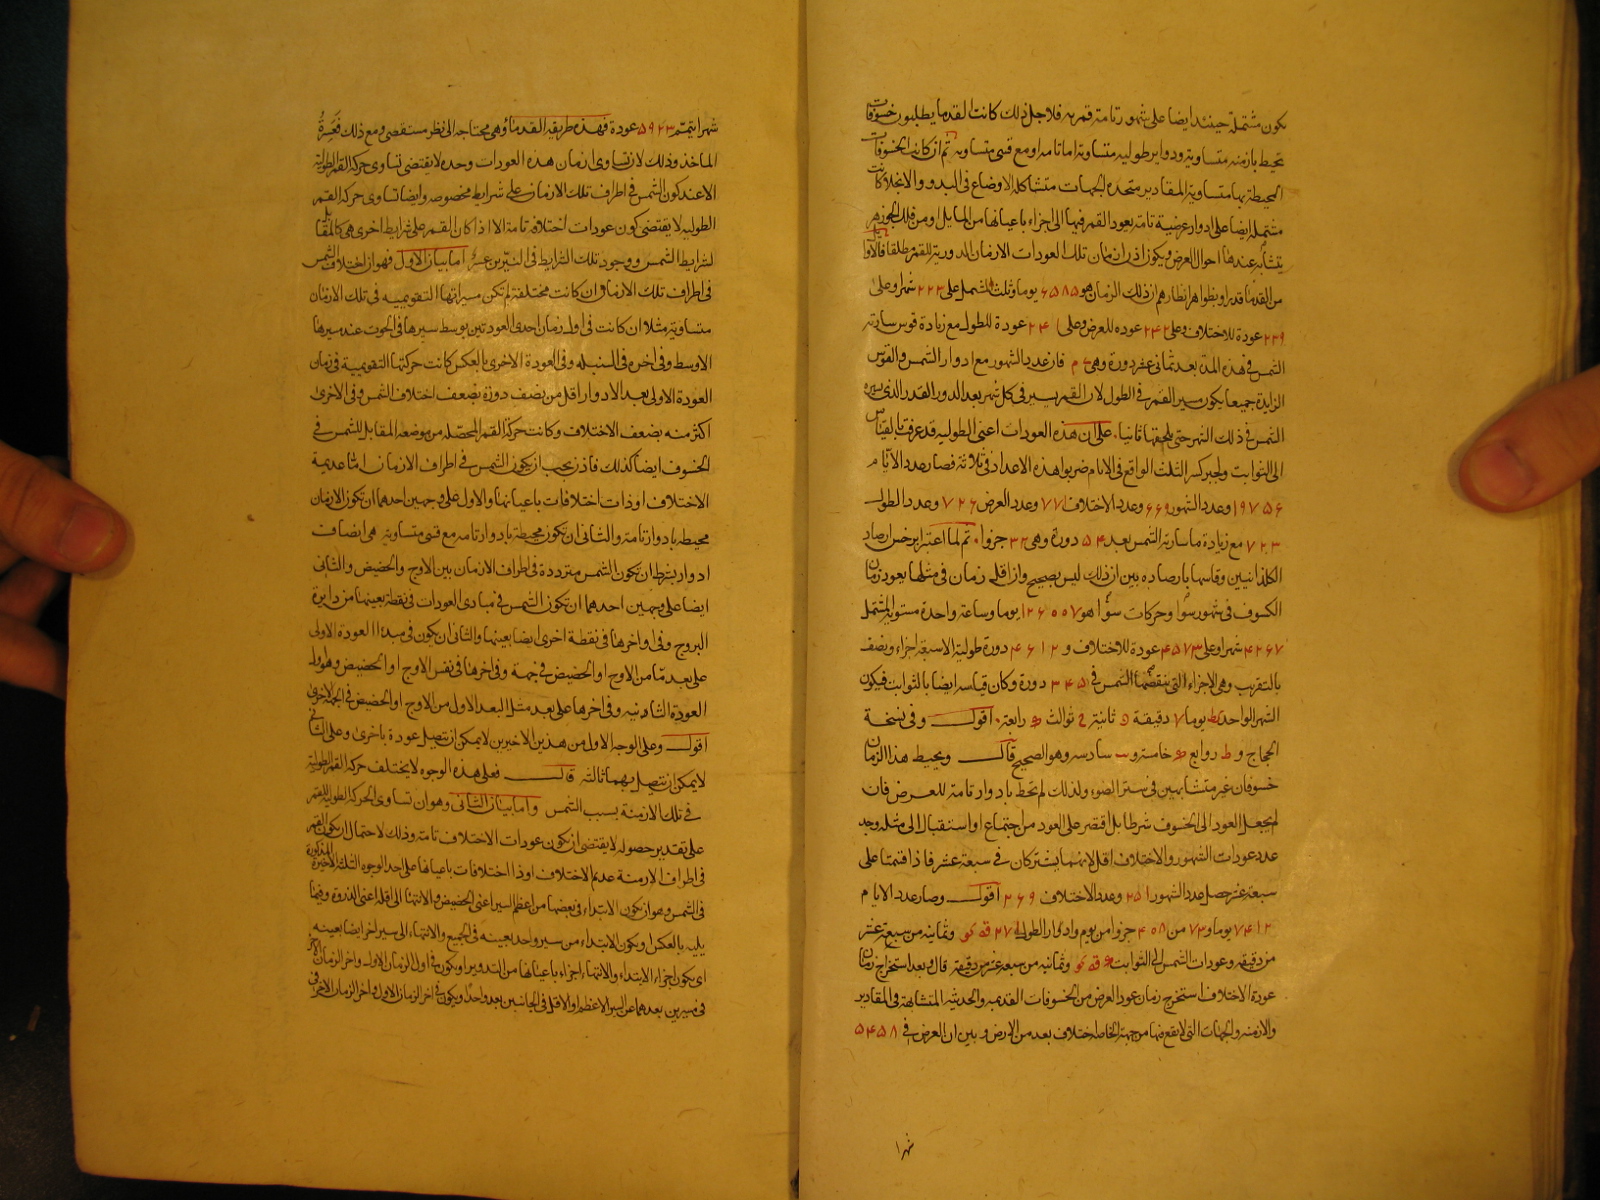 يكون مشتملة حينئذ ايضا على شهور تامة قمريه فلاجل ذلك كانت القدما يطلبون خسوفات
تحيط بازمنه متساوية ودواير طوليه متساوية اما تامه او مع قسى متساوية ثم ان كانت الخسوفات
المحيطة بها متساوية المقادير متحدة الجهات متشاكله الاوضاع فى البدو والانجلا كانت
مشتمله ايضا على ادوار عرضية تامة يعود القمر فيها الى اجزاء باعيانها من المايل او من فلك الجوزهر
يتشابه عندها احوال العرض ويكون اذن زمان تلك العودات الازمان الدورية للقمر مطلقا فالاوايل
من القدما قدراو بظواهر انظارهم ان ذلك الزمان هو ۶۵۸۵ يوما وثلث المشتمل على ۲۲۳ شهرا وعلى
۲۳۹ عودة للاختلاف وعلى ۲۴۲ عوده للعرض وعلى ۲۴۱ عودة للطول مع زيادة قوس سارته
الشمس فى هذه المدة بعد ثمانى عشر دورة وهى فان عدد الشهور مع ادوار الشمس والقوس
الزايدة جميعا يكون مسير القمر فى الطول لان القمر يسير فى كل شهر بعد الدور القدر الذى يسيره
الشمس فى ذلك الشهر حتى يلحقها ثانيا على ان هذه العودات اعنى الطوليه قد عرفت بالقياس
الى الثوابت ولجبر كسر الثلث الواقع فى الايام ضربوا هذه الاعداد فى ثلاثة فصار عدد الايام
۱۹۷۵۶ وعدد الشهور ۶۶۹ وعدد الاختلاف ۷۱۷ وعدد العرض ۷۲۶ وعدد الطول
۷۲۳ مع زيادة ما سارته الشمس بعد ۵۴ دورة وهى ۳۲ جزوا ثم لما اعتبر ابرخس ارصاد
الكلدانيين وقاسها بارصاده بين ان ذلك ليس بصحيح وان اقل زمان فى مثلها يعود زمان
الكسوف فى شهور سوا وحركات سوا هو ۱۲۶۰۰۷ يوما وساعة واحدة مستويه المشتمل
۴۲۶۷ شهرا وعلى ۴۵۷۳ عودة للاختلاف و ۴۶۱۲ دورة طولية الا سبعة اجزاء ونصف
بالتقريب وهى الاجزاء التى ينقصها الشمس فى ۳۴۵ دورة وكان قياسه ايضا بالثوابت فيكون
الشهر الواحد كط يوما دقيقة ثانية ثوالث رابعة اقول وفى نسخة
الحجاج و ط روابع خامسة و سادسه وهو الصحيح قال ويحيط هذا الزمان
خسوفان غير متشابهين فى ستر الضوء ولذلك لم تحط بادوار تامة للعرض فان
لم يجعل العود الى الخسوف شرطا بل اقتصر على العود من اجتماع او استقبال الى مثله وجد
عدد عودات الشهور والاختلاف اقل لانهما يشتركان فى سبعة عشر فاذا قسمتا على
سبعة عشر حصل عدد الشهور ۲۵۱ وعدد الاختلاف ۲۶۹ اقول وصار عدد الايام
۷۴۱۲ يوما و ۷۳ من ۴۰۸ جزوا من يوم وادوار الطول ۲۷۱ وثمانيه من سبعة عشر
من دقيقه وعودات الشمس الى الثوابت وثمانيه من سبعة عشر من دقيقة قال وبعد استخراج زمان
عودة الاختلاف استخرج زمان عود العرض من الخسوفات القديمه والحديثه المتشابهة فى المقادير
والازمنه والجهات التى لا يقع فيها من جهة الخاصه اختلاف بعد من الارض وبين ان العرض فى ۵۴۵۸
شهرا
شهرا يتمم ۵۹۲۳ عودة فهذه طريقه القدما وهى محتاجه الى نظر مستقصى ومع ذلك فعسرة
الماخذ وذلك لان تساوى ازمان هذه العودات وحده لا يقتضى تساوى حركة القمر الطولية
الا عند كون الشمس فى اطراف تلك الازمان على شرايط مخصوصه وايضا تساوى حركة القمر
الطوليه لا يقتضى كون عودات اختلافه تامة الا اذا كان القمر على شرايط اخرى هى كالمقابل
لشرايط الشمس ووجود تلك الشرايط فى النيرين عسر اما بيان الاول فهو ان اختلاف الشمس
فى اطراف تلك الازمان ان كانت مختلفة لم تكن مسيراتها التقويميه فى تلك الازمان
متساوية مثلا ان كانت فى اول زمان احدى العودتين بوسط سيرها فى الحوت عند سيرها
الاوسط وفى اخره فى السنبله وفى العودة الاخرى بالعكس كانت حركتها التقويمية فى زمان
العودة الاولى بعد الادوار اقل من نصف دورة بضعف اختلاف الشمس وفى الاخرى
اكثر منه بضعف الاختلاف وكانت حركة القمر المحصله من موضعه المقابل للشمس فى
الخسوف ايضا كذلك فاذن يجب ان يكون الشمس فى اطراف الازمان اما عديمة
الاختلاف او ذات اختلافات باعيانها والاول على وجهين احدهما ان تكون الازمان
محيطه بادوار تامة والثانى ان تكون محيطة بادوار تامه مع قسى متساوية هى انصاف
ادوار بشرط ان تكون الشمس مترددة فى اطراف الازمان بين الاوج والحضيض والثانى
ايضا على وجهين احدهما ان تكون الشمس فى مبادى العودات فى نقطة بعينها من دايرة
البروج وفى اواخرها فى نقطة اخرى ايضا بعينها والثانى ان يكون فى مبدا العودة الاولى
على بعد ما من الاوج او الحضيض فى جهة وفى اخرها فى نفس الاوج او الحضيض وهو اول
العودة الثانيه وفى اخرها على بعد مثل البعد الاول من الاوج او الحضيض فى الجهة الاخرى
اقول وعلى الوجه الاول من هذين الاخيرين لا يمكن ان تتصل عودة باخرى وعلى الثانى
لا يمكن ان تتصل بهما ثالثه قال فعلى هذه الوجوه لا يختلف حركة القمر الطولية
فى تلك الازمنة بسبب الشمس واما بيان الثانى وهو ان تساوى الحركة الطولية للقمر
على تقدير حصوله لا يقتضى ان يكون عودات الاختلاف تامة وذلك لاحتمال ان يكون القمر
فى اطراف الازمنة عديم الاختلاف او ذا اختلافات باعيانها على احد الوجوه الثلثة الاخيرة المذكورة
فى الشمس وهو ان يكون الابتداء فى بعضها من اعظم السير اعنى الحضيض والانتها الى اقله اعنى الذروة وفيما
يليه بالعكس او يكون الابتداء من سير واحد بعينه فى الجميع والانتهاء الى سير اخر ايضا بعينه
اى يكون اجزاء الابتداء والانتهاء اجزاء باعيانها من التدوير او يكون فى اول الزمان الاول واخر الزمان الاخر
فى مسيرين بعدهما عن السير الاعظم او الاقل فى الجانبين بعد واحد او يكون فى اخر الزمان الاول واخر الزمان الاخر فى